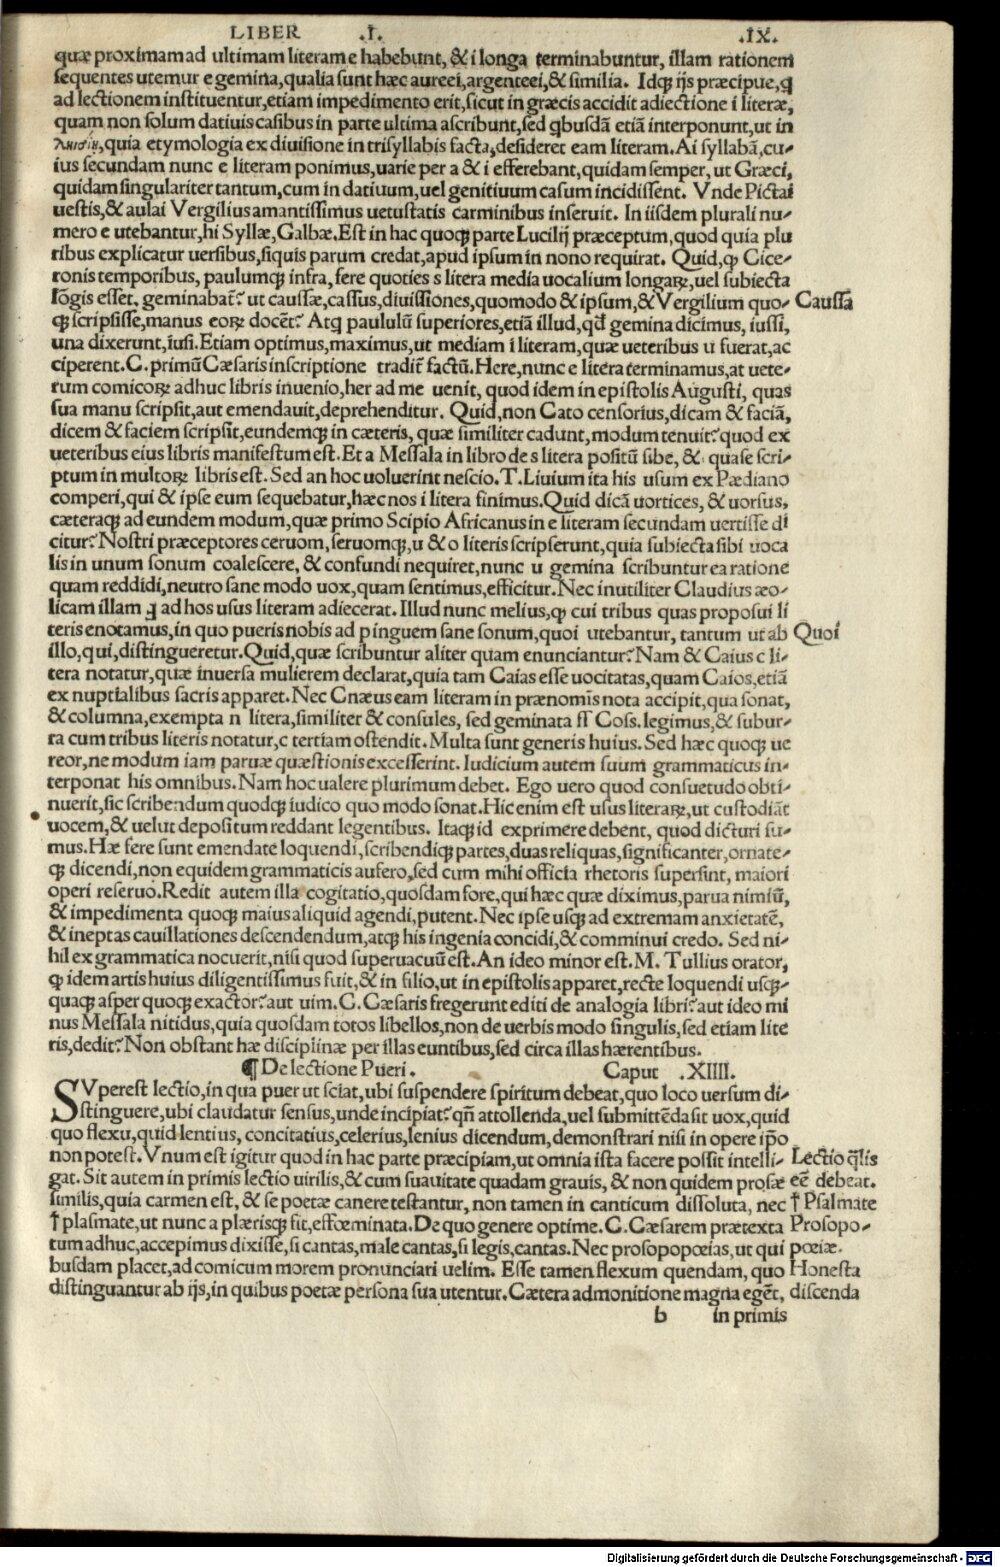 LIBER .I. .IX.
quæ proximam ad ultimam literam e habebunt, & i longa terminabuntur, illam rationem
sequentes utemur e gemina, qualia sunt hæc aureei, argenteei, & similia. Idqꝫ ijs præcipue, q
ad lectionem instituentur, etiam impedimento erit, sicut in græcis accidit adiectione i literæ,
quam non solum datiuis casibus in parte ultima ascribunt, sed qbusdã etiã interponunt, ut in
quia etymologia ex diuisione in trisyllabis facta, desideret eam literam. Ai syllabã, cu-
ius secundam nunc e literam ponimus, uarie per a & i efferebant, quidam semper, ut Græci,
quidam singulariter tantum, cum in datiuum, uel genitiuum casum incidissent. Vnde Pictai
uestis, & aulai Vergilius amantissimus uetustatis carminibus inseruit. In iisdem plurali nu-
mero e utebantur, hi Syllæ, Galbæ. Est in hac quoqꝫ parte Lucilij præceptum, quod quia plu
ribus explicatur uersibus, siquis parum credat, apud ipsum in nono requirat. Quid, qꝫ Cice-
ronis temporibus, paulumqꝫ infra, fere quoties s litera media uocalium longaꝝ, uel subiecta
lõgis esset, geminabat᷑? ut caussæ, cassus, diuissiones, quomodo & ipsum, & Vergilium quo-
qꝫ scripsisse, manus eoꝝ docẽt? Atq paululũ superiores, etiã illud, qd̃ gemina dicimus, iussi,
una dixerunt, iusi. Etiam optimus, maximus, ut mediam i literam, quæ ueteribus u fuerat, ac
ciperent. C. primũ Cæsaris inscriptione tradit᷑ factũ. Here, nunc e litera terminamus, at uete-
rum comicoꝝ adhuc libris inuenio, her ad me uenit, quod idem in epistolis Augusti, quas
sua manu scripsit, aut emendauit, deprehenditur. Quid, non Cato censorius, dicam & faciã,
dicem & faciem scripsit, eundemqꝫ in cæteris, quæ similiter cadunt, modum tenuit? quod ex
ueteribus eius libris manifestum est. Et a Messala in libro de s litera positũ sibe, & quase scri-
ptum in multoꝝ libris est. Sed an hoc uoluerint nescio. T. Liuium ita his usum ex Pædiano
comperi, qui & ipse eum sequebatur, hæc nos i litera finimus. Quid dicã uortices, & uorsus,
cæteraqꝫ ad eundem modum, quæ primo Scipio Africanus in e literam secundam uertisse di
citur? Nostri præceptores ceruom, seruomqꝫ, u & o literis scripserunt, quia subiecta sibi uoca
lis in unum sonum coalescere, & confundi nequiret, nunc u gemina scribuntur ea ratione
quam reddidi, neutro sane modo uox, quam sentimus, efficitur. Nec inutiliter Claudius æo-
licam illam ad hos usus literam adiecerat. Illud nunc melius, qꝫ cui tribus quas proposui li
teris enotamus, in quo pueris nobis ad pinguem sane sonum, quoi utebantur, tantum ut ab
illo, qui, distingueretur. Quid, quæ scribuntur aliter quam enunciantur? Nam & Caius c li-
tera notatur, quæ inuersa mulierem declarat, quia tam Caias esse uocitatas, quam Caios, etiã
ex nuptialibus sacris apparet. Nec Cnæus eam literam in prænomĩs nota accipit, qua sonat,
& columna, exempta n litera, similiter & consules, sed geminata ss Coss. legimus, & subur-
ra cum tribus literis notatur, c tertiam ostendit. Multa sunt generis huius. Sed hæc quoqꝫ ue
reor, ne modum iam paruæ quæstionis excesserint. Iudicium autem suum grammaticus in-
terponat his omnibus. Nam hoc ualere plurimum debet. Ego uero quod consuetudo obti-
nuerit, sic scribendum quodqꝫ iudico quo modo sonat. Hic enim est usus literaꝝ, ut custodiãt
uocem, & uelut depositum reddant legentibus. Itaqꝫ id exprimere debent, quod dicturi su-
mus. Hæ fere sunt emendate loquendi, scribendiqꝫ partes, duas reliquas, significanter, ornate-
qꝫ dicendi, non equidem grammaticis aufero, sed cum mihi officia rhetoris supersint, maiori
operi reseruo. Redit autem illa cogitatio, quosdam fore, qui hæc quæ diximus, parua nimiũ,
& impedimenta quoqꝫ maius aliquid agendi, putent. Nec ipse usqꝫ ad extremam anxietatẽ,
& ineptas cauillationes descendendum, atqꝫ his ingenia concidi, & comminui credo. Sed ni-
hil ex grammatica nocuerit, nisi quod superuacuũ est. An ideo minor est. M. Tullius orator,
qꝫ idem artis huius diligentissimus fuit, & in filio, ut in epistolis apparet, recte loquendi usqꝫ-
quaqꝫ asper quoqꝫ exactor? aut uim. C. Cæsaris fregerunt editi de analogia libri? aut ideo mi
nus Messala nitidus, quia quosdam totos libellos, non de uerbis modo singulis, sed etiam lite
ris, dedit? Non obstant hæ disciplinæ per illas euntibus, sed circa illas hærentibus.
¶ De lectione Pueri. Caput .XIIII.
SVperest lectio, in qua puer ut sciat, ubi suspendere spiritum debeat, quo loco uersum di-
stinguere, ubi claudatur sensus, unde incipiat? qñ attollenda, uel submittẽda sit uox, quid
quo flexu, quid lentius, concitatius, celerius, lenius dicendum, demonstrari nisi in opere ip̃o
non potest. Vnum est igitur quod in hac parte præcipiam, ut omnia ista facere possit intelli-
gat. Sit autem in primis lectio uirilis, & cum suauitate quadam grauis, & non quidem prosæ
similis, quia carmen est, & se poetæ canere testantur, non tamen in canticum dissoluta, nec
† plasmate, ut nunc a plærisqꝫ fit, effœminata. De quo genere optime. C. Cæsarem prætexta
tum adhuc, accepimus dixisse, si cantas, male cantas, si legis, cantas. Nec prosopopœias, ut qui
busdam placet, ad comicum morem pronunciari uelim. Esse tamen flexum quendam, quo
distinguantur ab ijs, in quibus poetæ persona sua utentur. Cætera admonitione magna egẽt,
b in primis
Caussa
Quoi
Lectio q̃lis
eẽ debeat.
† Psalmate
Prosopo-
pœiæ.
Honesta
discenda
Digitalisierung gefördert durch die Deutsche Forschungsgemeinschaft - DFG